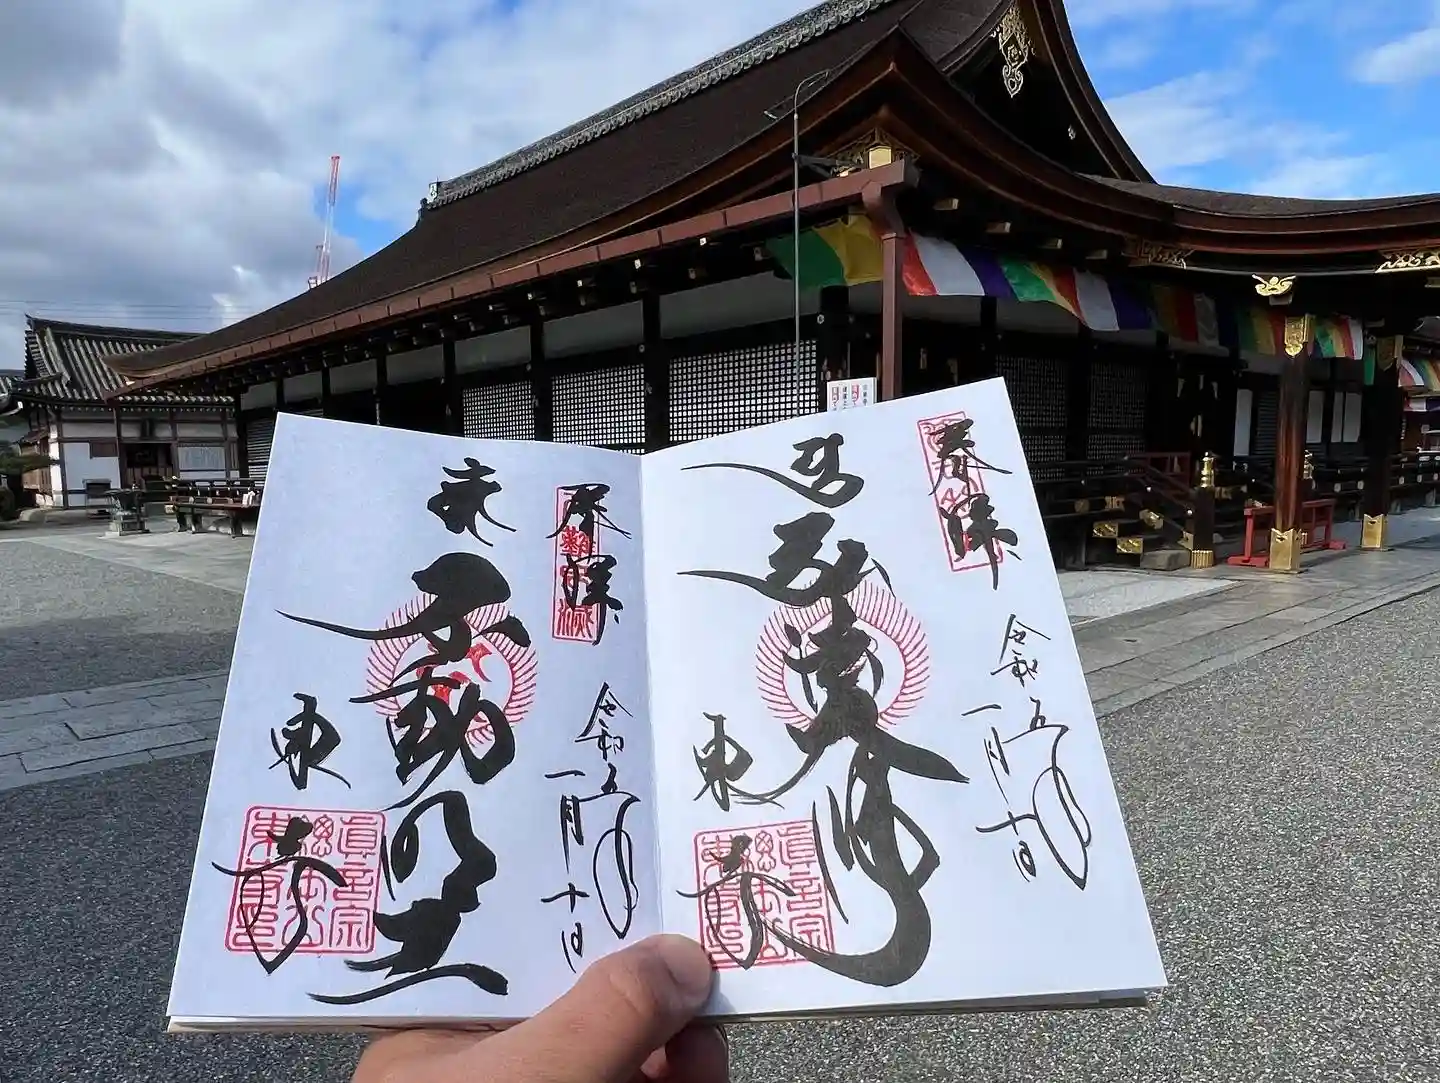 奉拝
令和五年
一月十日
弘法大師
東寺
真言宗
總本山
東寺印
奉拝
令和五年
一月十日
不動明王
東寺
真言宗
總本山
東寺印